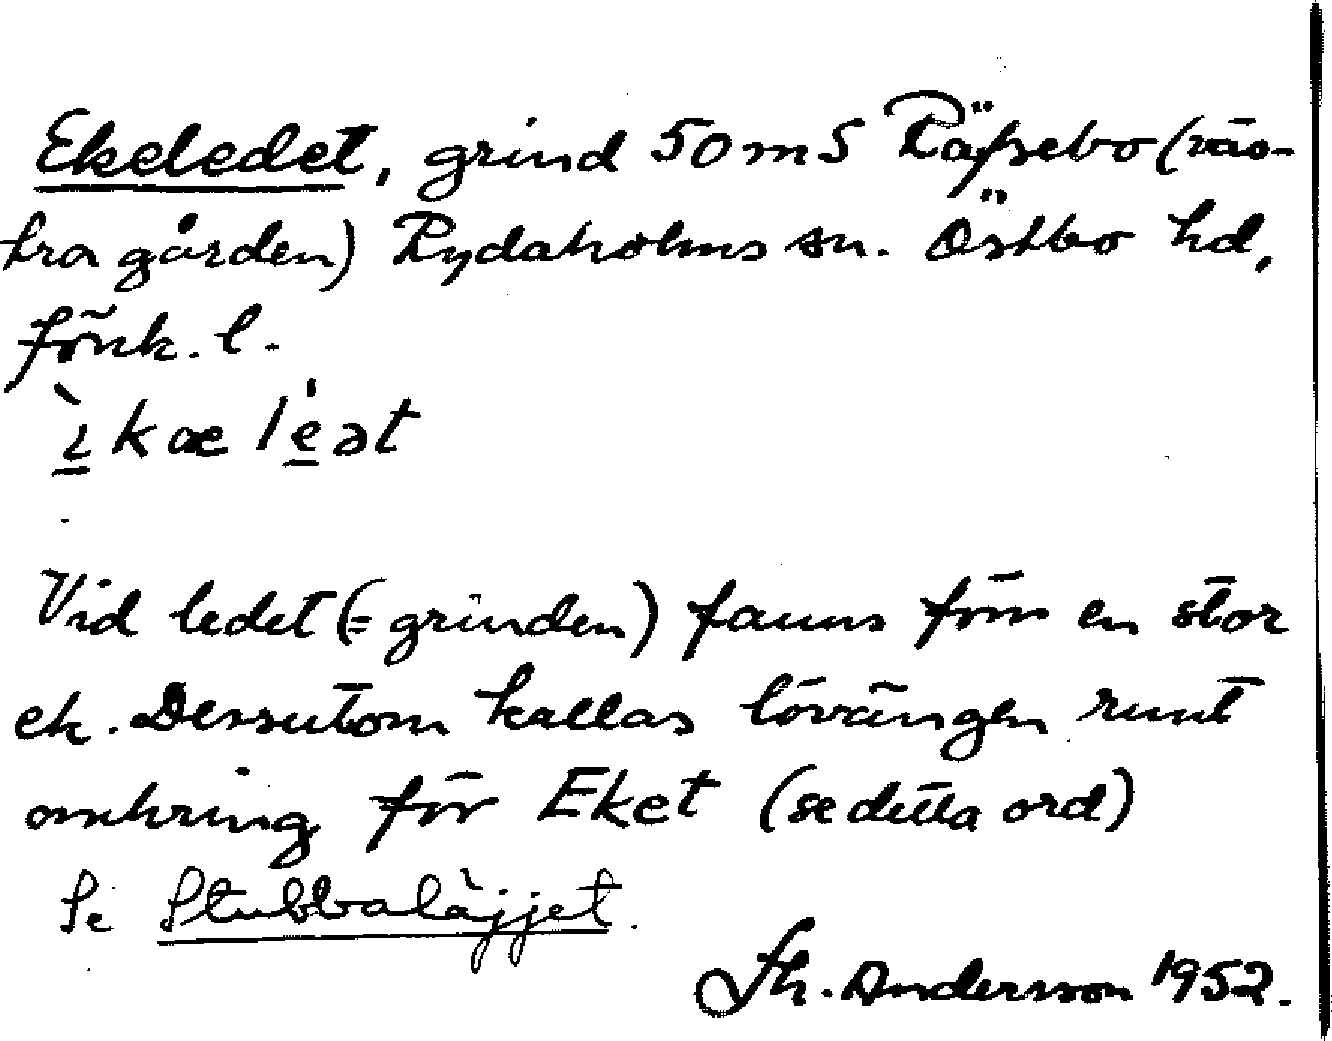 Ekeledet, grind 50 m S Räfsebo (väs-
tra gården) Rydaholms sn. Östbo hd,
Jönk. l.
ìkæ léət
Vid ledet (= grinden) fanns förr en stor
ek. Dessutom kallas lövängen runt
omkring för Eket (se detta ord)
Se Stubbaläjjet.
Th. Andersson 1952.